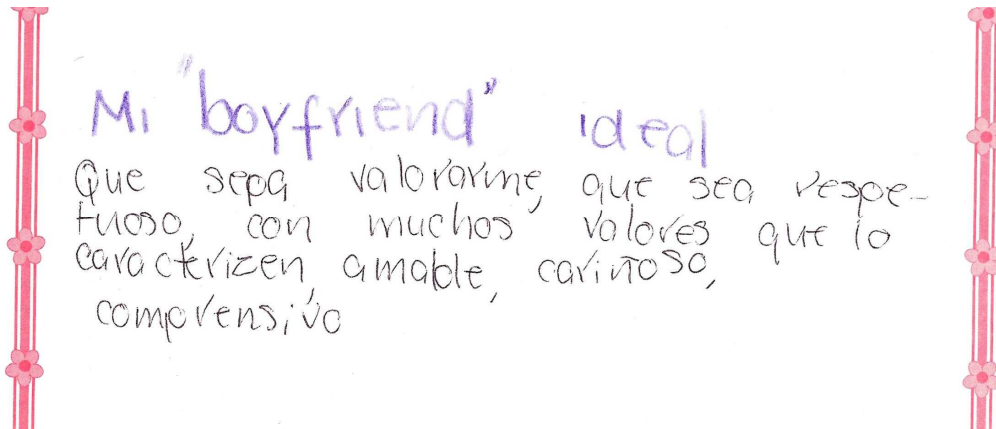 Mi "boyfriend" ideal
Que sepa valorarme, que sea respe-
tuoso, con muchos valores que lo
caracterizen, amable, cariñoso,
comprensivo